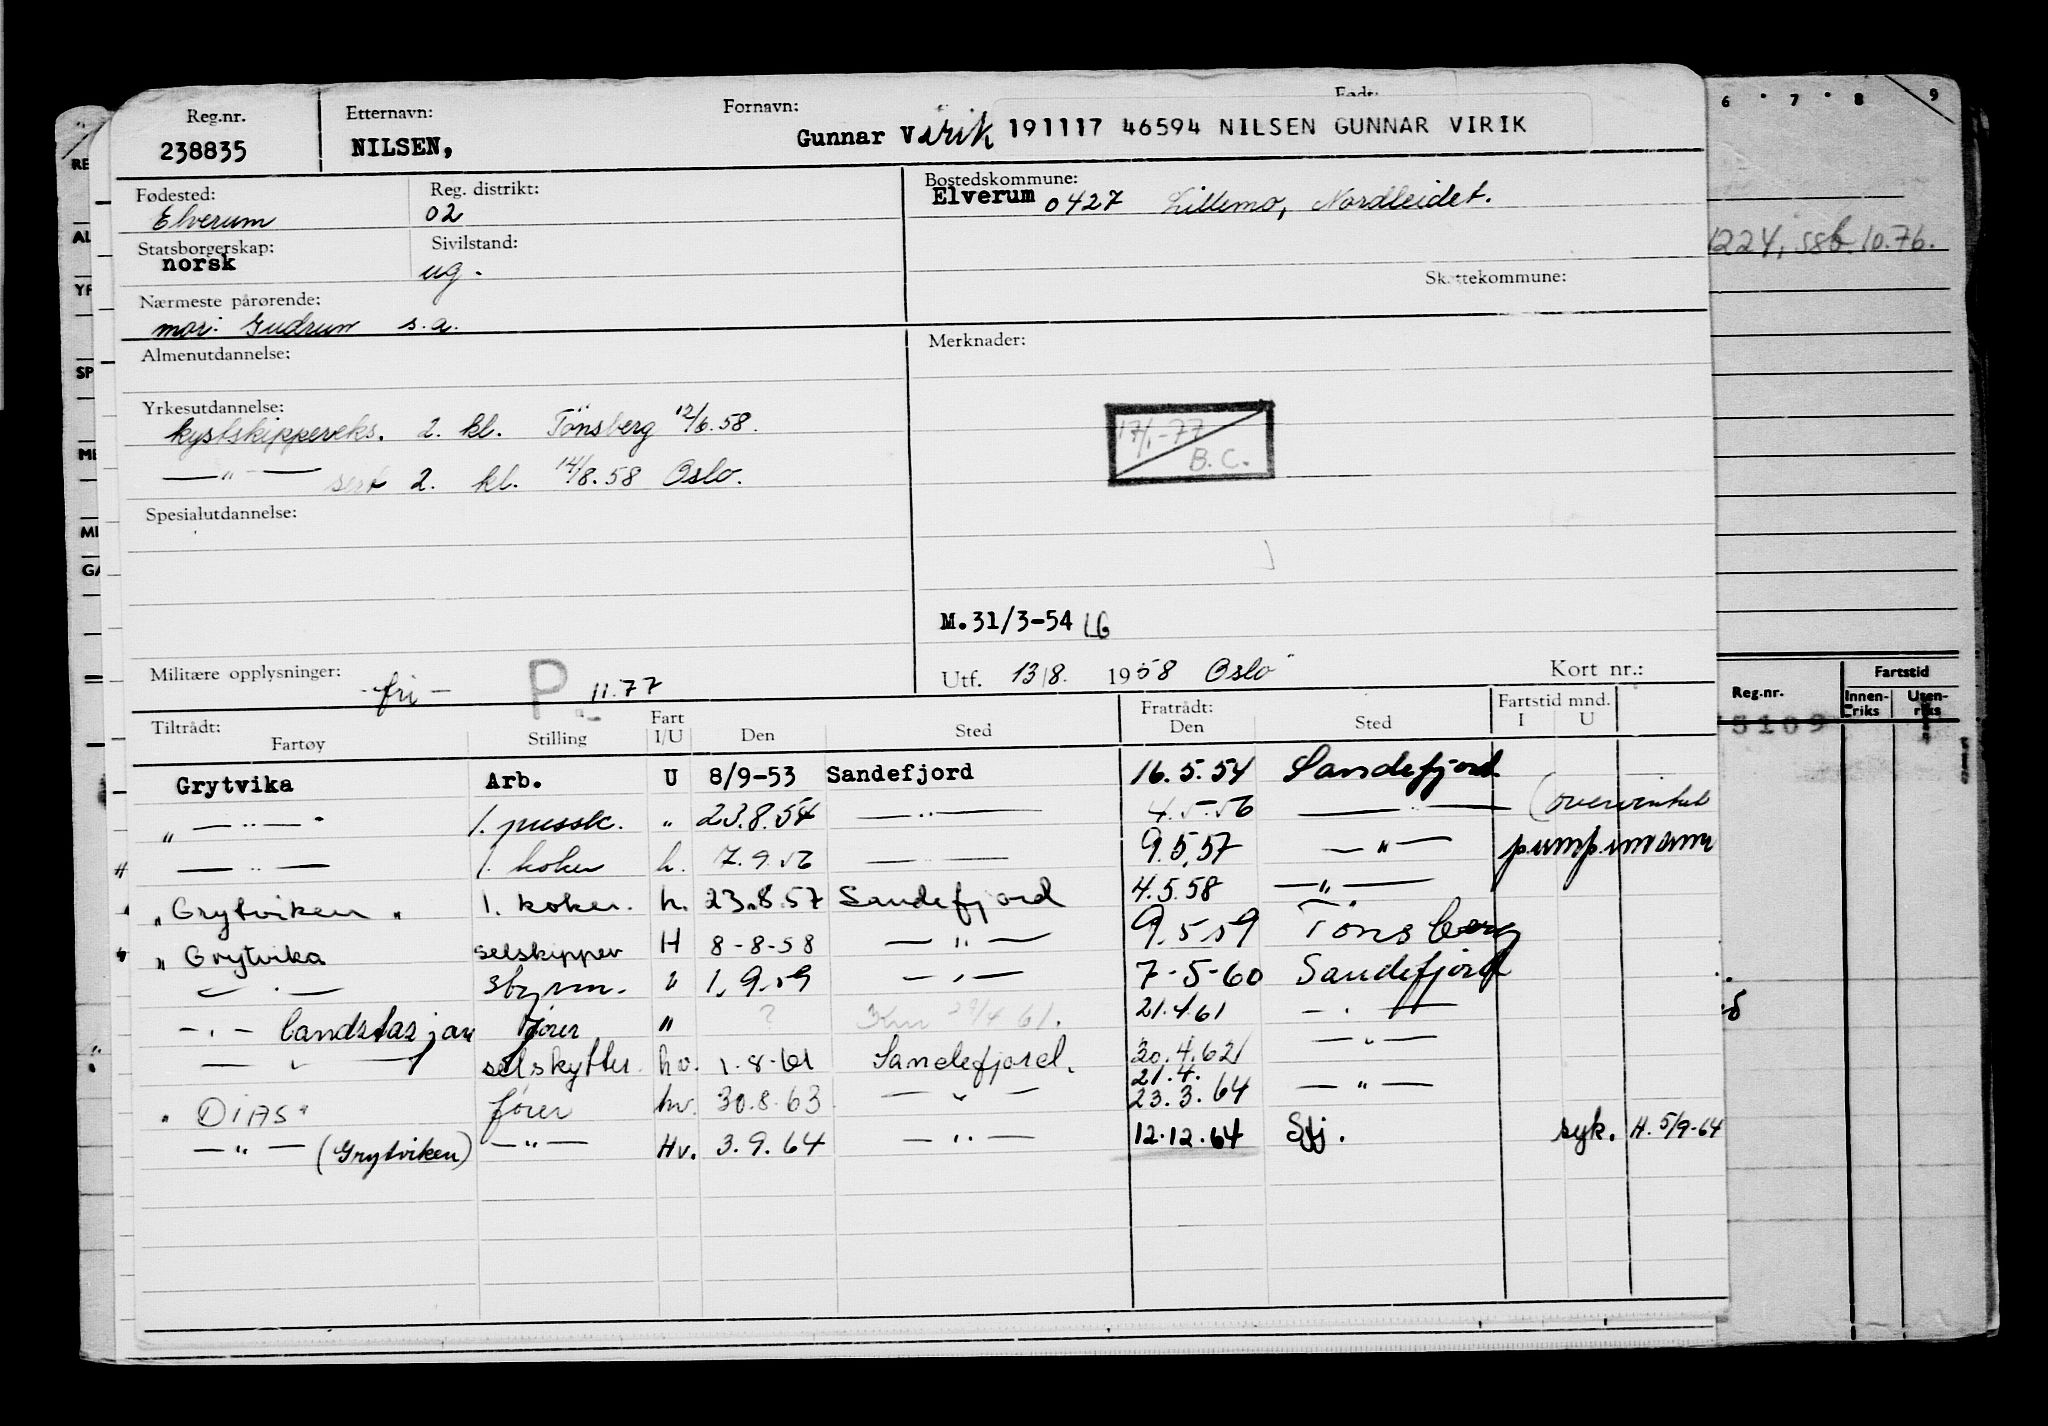 Reg.nr. Etternavn: Fornavn: Født:
238835 NILSEN, Gunnar Virik 191117 46594 NILSEN GUNNAR VIRIK
Fødested: Reg. distrikt: Bostedskommune:
Elverum 02 Elverum 0427 Lillemo, Nordleidet.
Statsborgerskap: Sivilstand:
norsk ug.
Skattekommune:
Nærmeste pårørende:
mor: Gudrun s.a.
Almenutdannelse: Merknader:
Yrkesutdannelse:
kystskippereks. 2. kl. Tönsberg 12/6.58.
17/1-77
B.C.
— " — sert 2. kl. 14/8.58 Oslo.
Spesialutdannelse:
M.31/3-54 LG
Militære opplysninger: Utf. 13/8. 1958 Oslo Kort nr.:
- fri - P. 11.77
Tiltrådt: Fart Fratrådt: Fartstid mnd.
Fartøy Stilling I/U Den Sted Den Sted I U
Grytvika Arb. U 8/9-53 Sandefjord 16.5.54 Sandefjord
" — " — 1. pussk. " 23.8.54 — " — 4.5.56 — " — (overvintret
— " — 1. koker h. 7.9.56 — " — 9.5.57 — " — pumpemann
"Grytviken" 1. koker. h. 23.8.57 Sandefjord 4.5.58 — " —
" Grytvika selskipper H 8-8-58 — " — 9.5.59 Tönsberg
— " — Styrm. " 1.9.59 — " — 7-5-60 Sandefjord
— " — landstasjon fører " ? 21.4.61 — " —
— " — selskytter hv. 1.8.61 Sandefjord. 30.4.62 — " —
21.4.
" DIAS" fører hv. 30.8.63 — " — 23.3.64 — " —
— " — (Grytviken) — " — Hv. 3.9.64 — " — 12.12.64 Sfj. syk. H. 5/9-64
6 7 8 9
1224, ssb 10.76.
Reg.nr. Fartstid
Innenriks Utenriks
5109